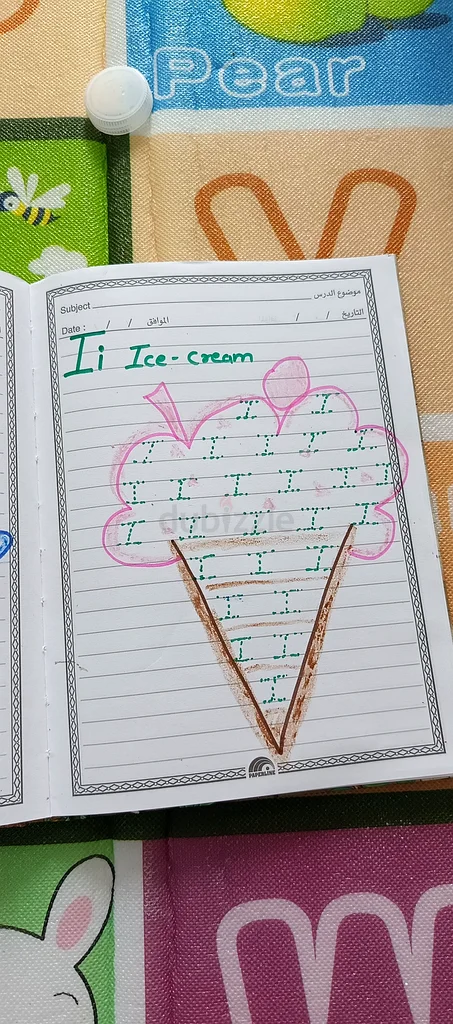 Pear
Subject موضوع الدرس
Date : / / الموافق / / التاريخ
Ii Ice-cream
I I
I I I I I
I I I I I I
I I I I I
dubizzle
I I I
I I
I I
I
PAPERLINE